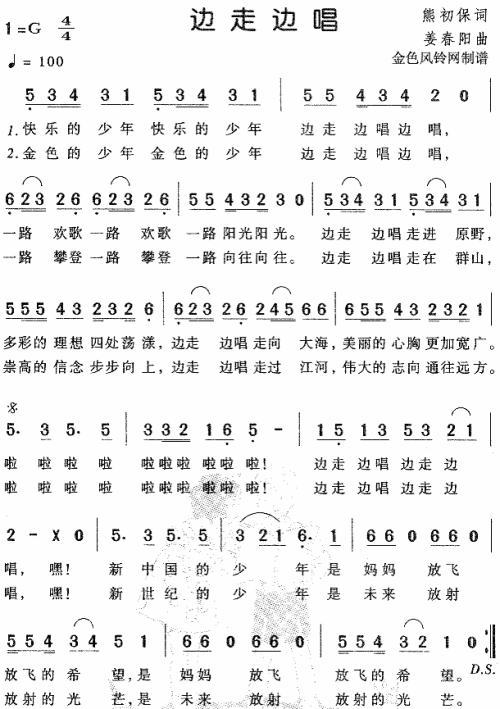 边走边唱
1=G 4/4
熊初保词
姜春阳曲
♩=100
金色风铃网制谱
5 3 4 3 1 5 3 4 3 1 | 5 5 5 4 3 4 2 0 |
1.快乐的 少年 快乐的 少年 边走 边唱边 唱，
2.金色的 少年 金色的 少年 边走 边唱边 唱，
6 2 3 2 6 6 2 3 2 6 | 5 5 4 3 2 3 0 | 5 3 4 3 1 5 3 4 3 1 |
一路 欢歌 一路 欢歌 一路 阳光阳光。 边走 边唱 走进 原野，
一路 攀登 一路 攀登 一路 向往向往。 边走 边唱 走在 群山，
5 5 5 4 3 2 3 2 6 | 6 2 3 2 6 2 4 5 6 6 | 6 5 5 4 3 2 3 2 1 |
多彩的 理想 四处荡 漾，边走 边唱 走向 大海，美丽的 心胸 更加宽广。
崇高的 信念 步步向 上，边走 边唱 走过 江河，伟大的 志向 通往远方。
𝄋
5. 3 5. 5 | 3 3 2 2 1 6 5 - | 1 5 1 3 5 3 2 1 |
啦 啦 啦 啦 啦啦啦 啦啦 啦！ 边走 边唱 边走 边
啦 啦 啦 啦 啦啦啦 啦啦 啦！ 边走 边唱 边走 边
2 - X 0 | 5. 3 5. 5 | 3 2 1 6. 1 | 6 6 0 6 6 0 |
唱，嘿！ 新 中 国 的 少 年 是 妈妈 放飞
唱，嘿！ 新 世 纪 的 少 年 是 未来 放射
5 5 4 3 4 5 1 | 6 6 0 6 6 0 | 5 5 4 3 2 1 0 :|
放飞的 希 望，是 妈妈 放飞 放飞的 希 望。 D.S.
放射的 光 芒，是 未来 放射 放射的 光 芒。